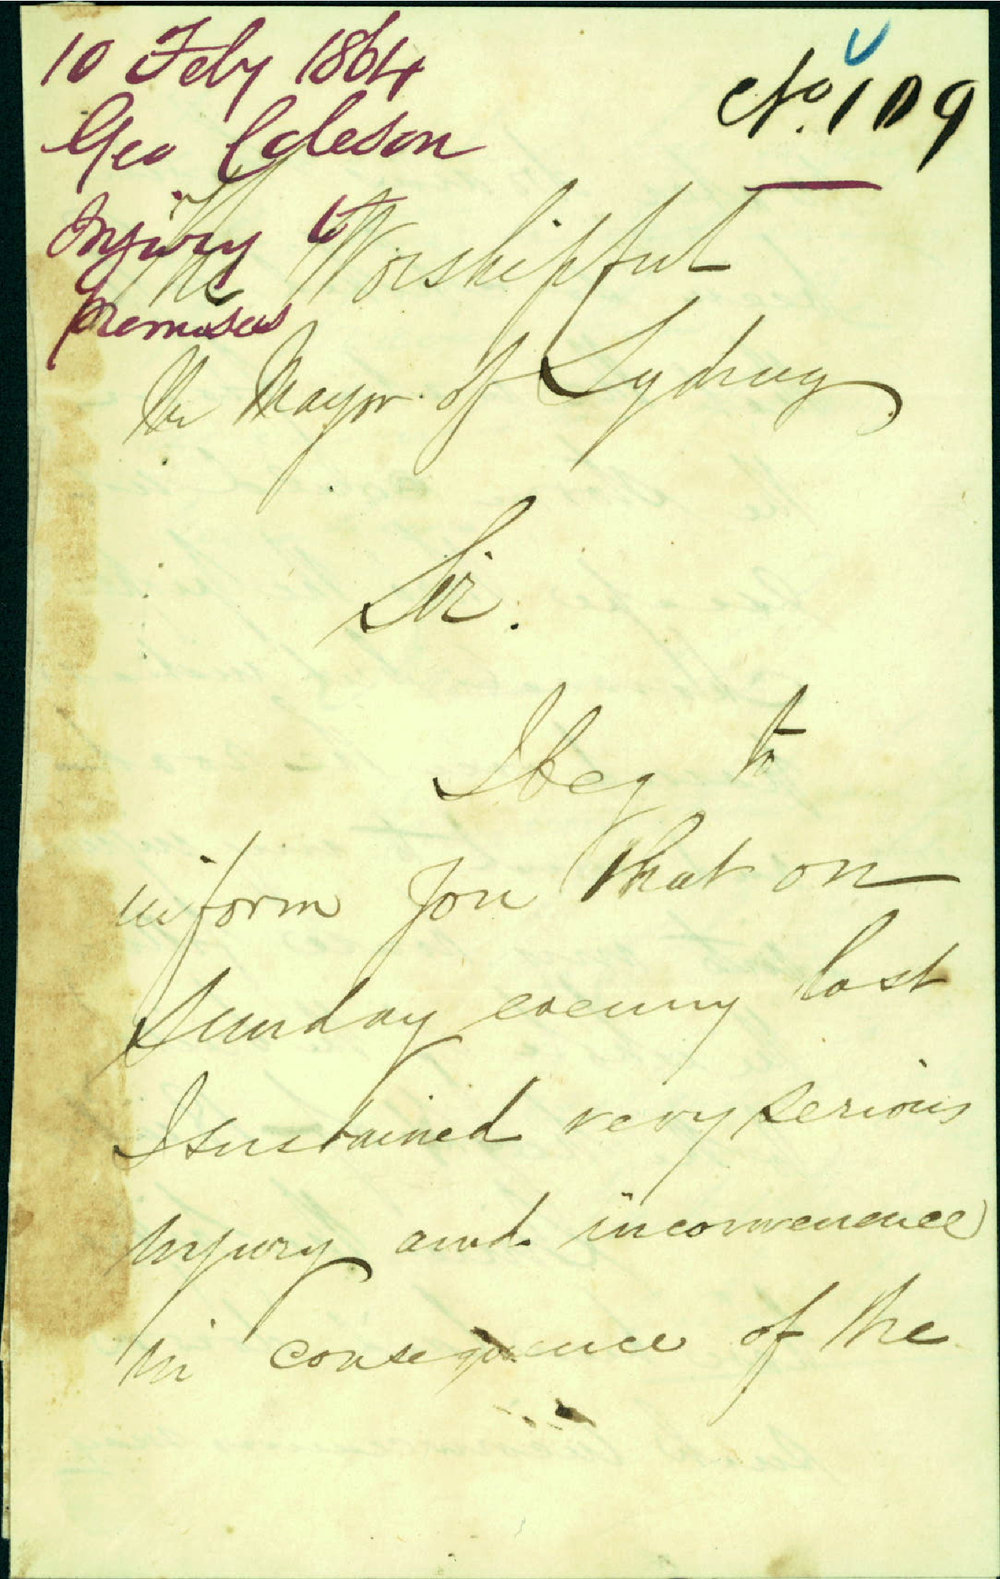 10 Feby 1864
No. 109
Geo Coleson
Injury to
premises
The Worshipful
the Mayor of Sydney
Sir.
I beg to
inform you that on
Sunday evening last
I sustained very serious
injury and inconvenience
in consequence of the